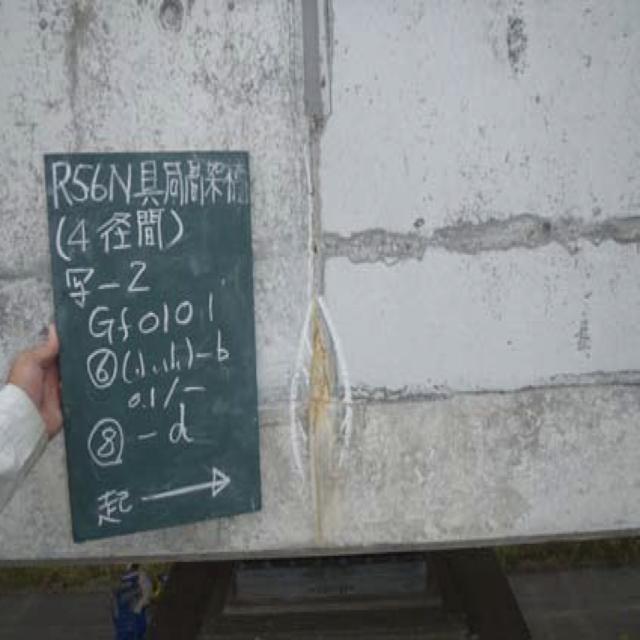 R56N具同高架橋
(4径間)
写-2
Gf0101
⑥(小,小)-b
0.1/-
⑧-d
起→